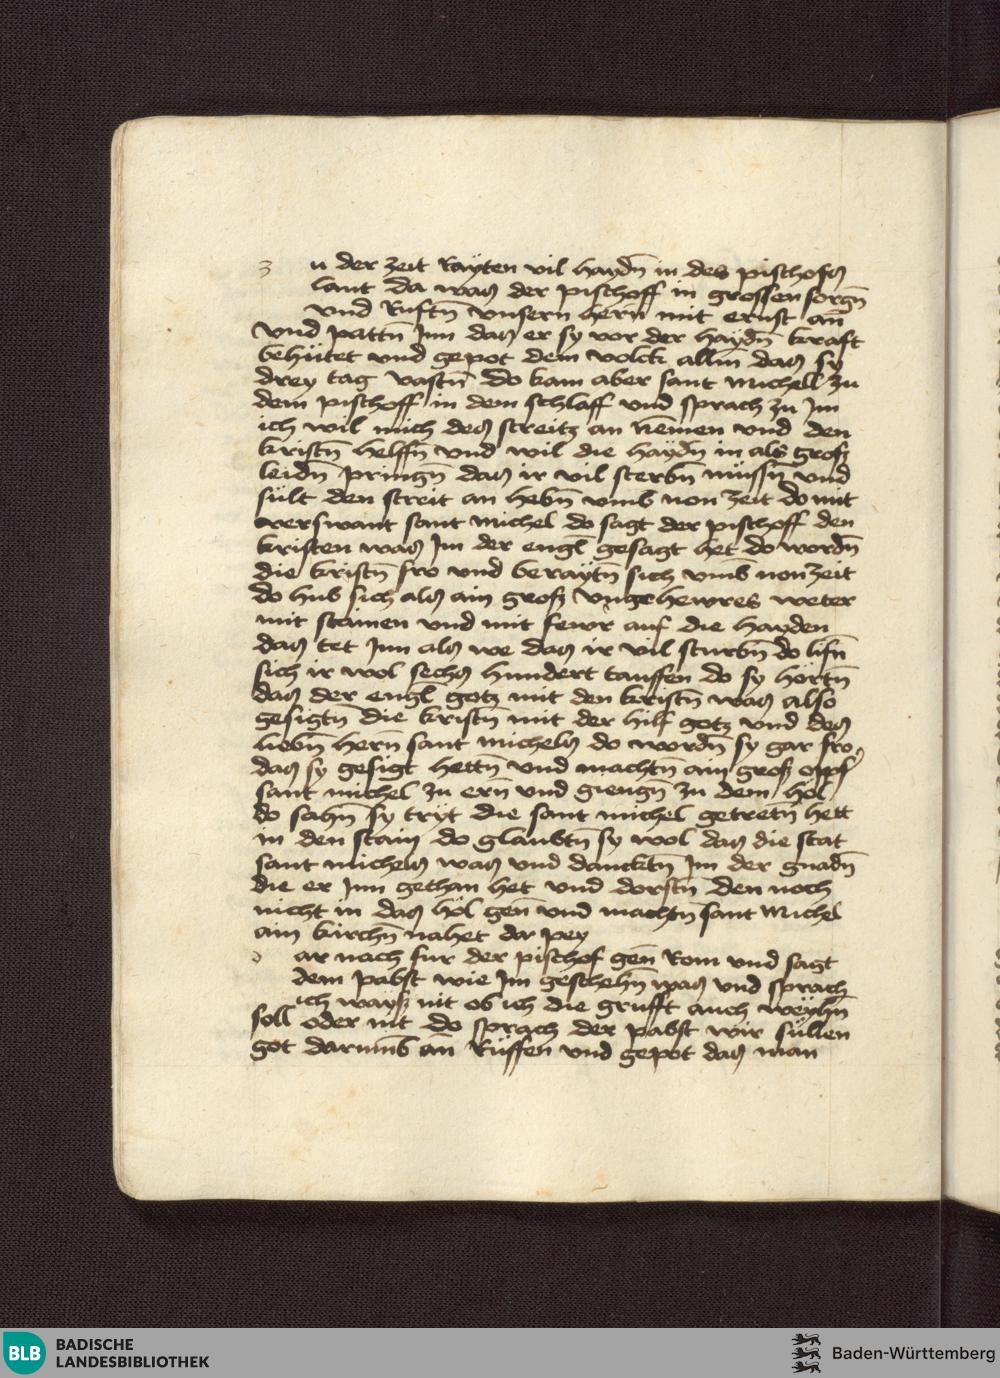 z u der zeit Raÿten vil haÿdn̄ in des pischofs
lant da was der pischoff in grossen sorgn̄
vnd Ruftn̄ vnsern hern̄ mit ernst an
vnd pattn̄ Jnn das er sy vor der haÿdn̄ kraft
behütet vnd gepot dem volck allm̄ das sy
drey tag vastn̄ do kam aber sant michell zu
dem pischoff in dem schlaff vnd sprach zu Jm
ich wil mich des streitz an nemen vnd den
kristn̄ helffn̄ vnd wil die haÿdn̄ in als groß
leidn̄ pringn̄ das ir vil sterbn̄ müssn̄ vnd
sült den streit an hebn̄ vmb non zeit do mit
verswant sant michel do sagt der pischoff den
kristen was Jm der engl̄ gesagt het do wordn̄
die kristn̄ fro vnd beraÿtn̄ sich vmb non zeit
do hub sich als ain groß vngehewres weter
mit stainen vnd mit fewr auf die haÿden
das tet Jnn als we das ir vil sturbn̄ do lifn̄
sich ir wol sechs hundert tauffen do sy hörtn̄
das der engl̄ gotz mit den kristn̄ was also
gesigtn̄ die kristn̄ mit der hilf gotz vnd des
liebn̄ hern̄ sant michels do wordn̄ sy gar fro
das sy gesigt hettn̄ vnd machtn̄ ain groß opf̕
sant michel zu ern̄ vnd giengn̄ zu dem höl
do sahn̄ sy tryt die sant michel getretn̄ hett
in den stain do glaubtn̄ sy wol das die stat
sant michels was vnd dancktn̄ Jm der gnadn̄
die er Jnn gethan het vnd dorstn̄ den noch
nicht in das höl gen̄ vnd machtn̄ sant Michel
ain kirchn̄ nahet dar pey
d ar nach fur der pischof gen̄ Rom vnd sagt
dem pabst wie Jm geschehn̄ was vnd sprach
ich wayß nit ob ich die grufft auch weÿhn̄
soll oder nit do sprach der pabst wir süllen
got darumb an̄ Rüffen vnd gepot das man
BLB BADISCHE
LANDESBIBLIOTHEK
Baden-Württemberg